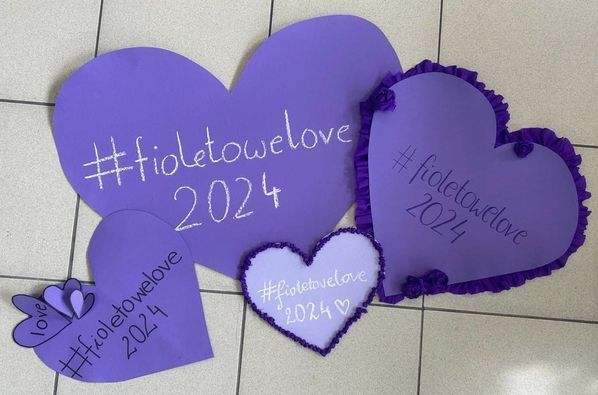 #fioletowelove
2024
#fioletowelove
2024
love
#fioletowelove
2024
#fioletowelove
2024 ♡